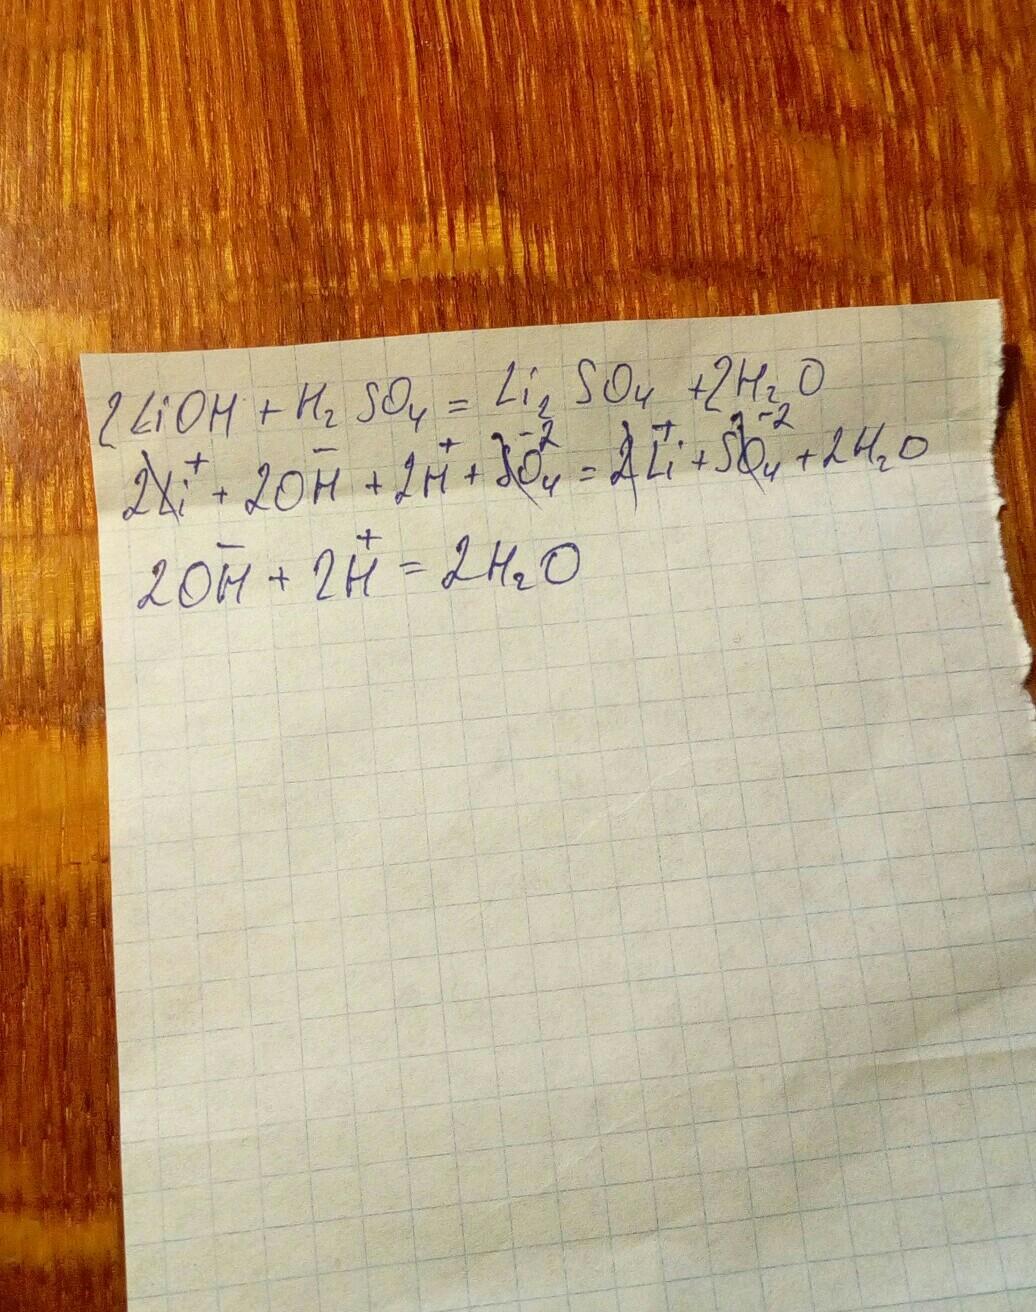 2LiOH + H₂SO₄ = Li₂SO₄ + 2H₂O
2Li⁺ + 2OH⁻ + 2H⁺ + SO₄⁻² = 2Li⁺ + SO₄⁻² + 2H₂O
2OH⁻ + 2H⁺ = 2H₂O